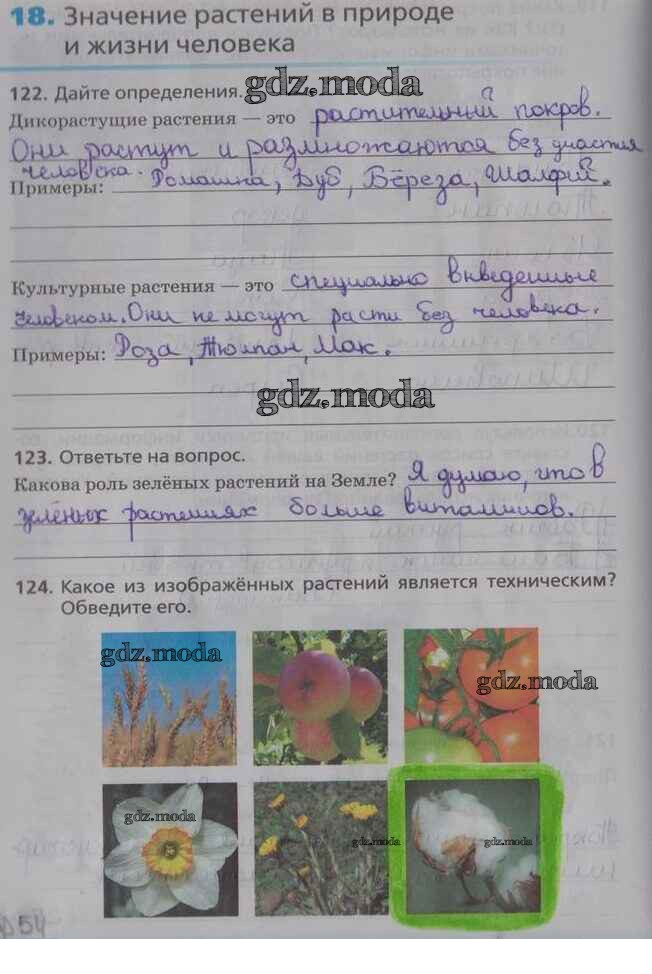 18. Значение растений в природе
и жизни человека
gdz.moda
122. Дайте определения.
Дикорастущие растения — это растительный покров.
Они растут и размножаются без участия
человека.
Примеры: Ромашка, Дуб, Берёза, Шалфей.
Культурные растения — это специально вкведенные
человеком. Они не могут расти без человека.
Примеры: Роза, Тюлпан, Мак.
gdz.moda
123. Ответьте на вопрос.
Какова роль зелёных растений на Земле? Я думаю, что в
зелёных растениях больше витаминов.
124. Какое из изображённых растений является техническим?
Обведите его.
gdz.moda
gdz.moda
gdz.moda
gdz.moda
gdz.moda
54